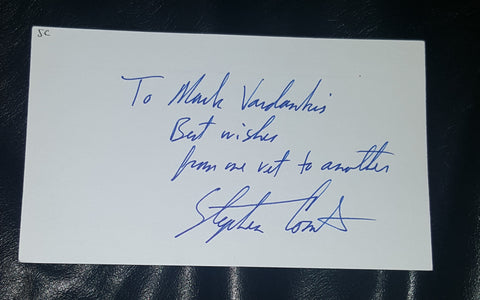 SC
To Mark Vardankis
Best wishes
from one vet to another
Stephen